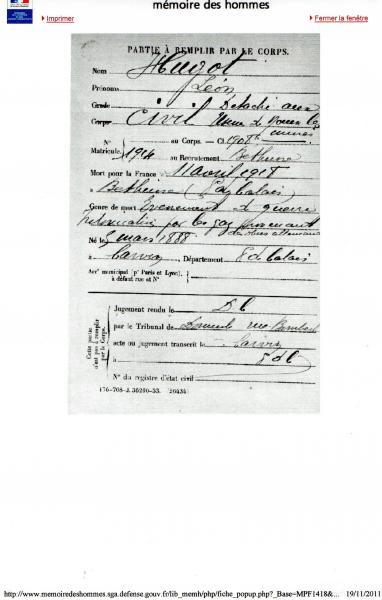 mémoire des hommes
Imprimer
Fermer la fenêtre
PARTIE À REMPLIR PAR LE CORPS.
Nom Huvot
Prénoms Léon
Grade Détaché aux
Corps Civil Mines de Noeux les
mines
N° au Corps. — Cl. 1908
Matricule. 1914 au Recrutement Béthune
Mort pour la France le 11 avril 1918
à Béthune (Pas Calais)
Genre de mort Evènement de guerre
par les gaz provenant
des obus allemands
Né le mars 1888
à Carvin Département P. de Calais
Arr^t municipal (p^r Paris et Lyon),
à défaut rue et N°
Cette partie n'est pas à remplir par le Corps.
Jugement rendu le D b
par le Tribunal de rue
acte ou jugement transcrit le Carvin
à P d C
N° du registre d'état civil
176-708-J. 36290-33. (26434)
http://www.memoiredeshommes.sga.defense.gouv.fr/lib_memh/php/fiche_popup.php?_Base=MPF1418&... 19/11/2011